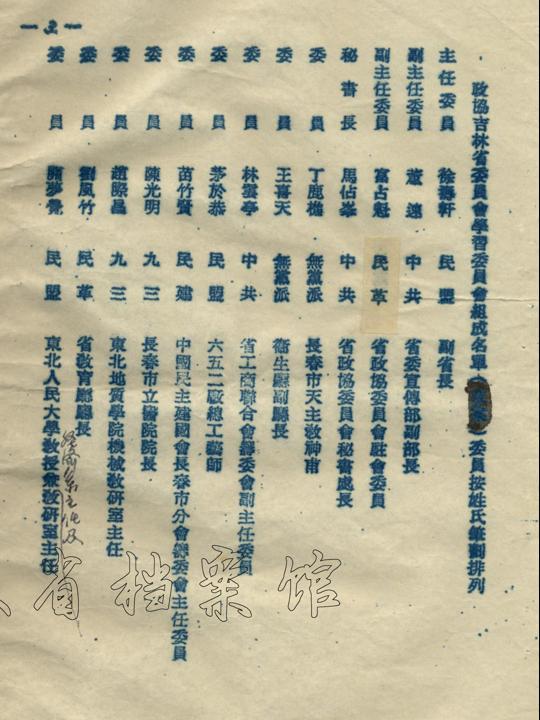 政協吉林省委員會學習委員會組成名單 委員按姓氏筆劃排列
主任委員 徐壽軒 民盟 副省長
副主任委員 董速 中共 省委宣傳部副部長
副主任委員 富占魁 民革 省政協委員會駐會委員
秘書長 馬佔峯 中共 省政協委員會秘書處長
委員 丁鹿樵 無黨派 長春市天主教神甫
委員 王喜天 無黨派 衞生廳副廳長
委員 林雲亭 中共 省工商聯合會籌委會副主任委員
委員 茅於恭 民盟 六五二廠總工藝師
委員 苗竹賢 民建 中國民主建國會長春市分會籌委會主任委員
委員 陳光明 九三 長春市立醫院院長
委員 趙際昌 九三 東北地質學院機械教研室主任
委員 劉風竹 民革 省教育廳廳長
委員 夢覺 民盟 東北人民大學教授兼教研室主任
系主任及
省档案馆